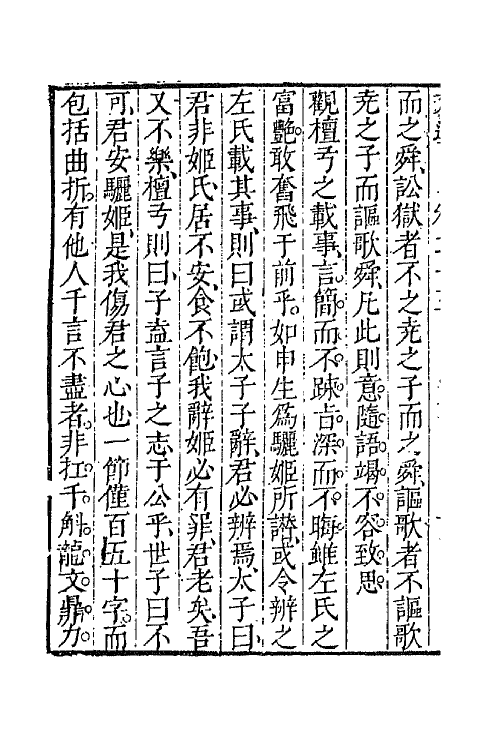 而之舜訟獄者不之尭之子而之舜謳歌者不謳歌
尭之子而謳歌舜凡此則意隨語竭不容致思
觀檀弓之載事言簡而不踈旨深而不晦雖左氏之
富艷敢奮飛于前乎如申生爲驪姬所譖或令辨之
左氏載其事則曰或謂太子子辭君必辨焉太子曰
君非姬氏居不安食不飽我辭姬必有罪君老矣吾
又不樂檀弓則曰子盍言子之志于公乎世子曰不
可君安驪姬是我傷君之心也一節僅百五十字而
包括曲折有他人千言不盡者非扛千斛龍文鼎力